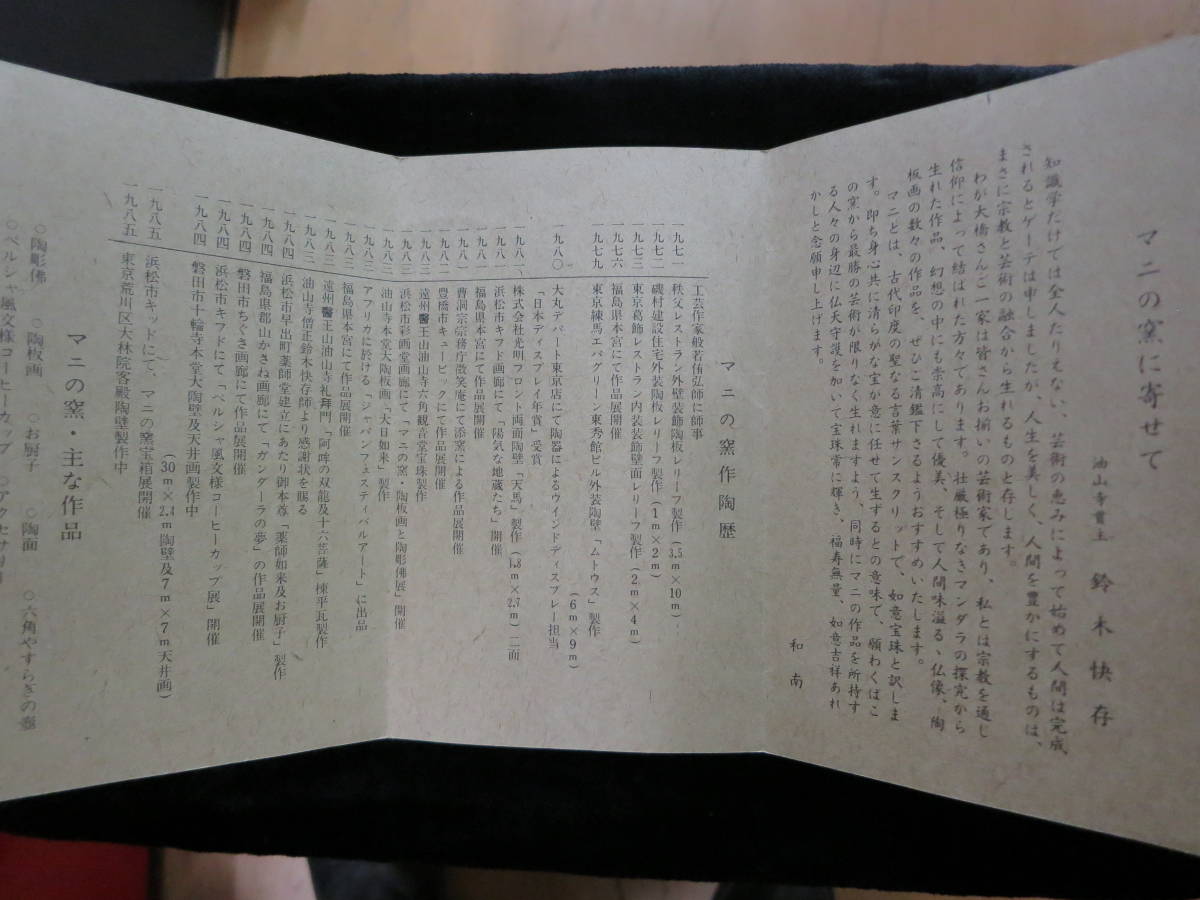 マニの窯に寄せて
油山寺貫主　鈴木快存
知識学だけでは全人たりえない、芸術の恵みによって始めて人間は完成
されるとゲーテは申しましたが、人生を美しく、人間を豊かにするものは、
まさに宗教と芸術の融合から生れるものと存じます。
わが大橋さんご一家は皆さんお揃いの芸術家であり、私とは宗教を通じ
信仰によって結ばれた方々であります。壮厳極りなきマンダラの探究から
生れた作品、幻想の中にも崇高にして優美、そして人間味溢る、仏像、陶
板画の数々の作品を、ぜひご清鑑下さるようおすすめいたします。
マニとは、古代印度の聖なる言葉サンスクリットで、如意宝珠と訳しま
す。即ち身心共に清らかな宝が意に任せて生ずるとの意味で、願わくばこ
の窯から最勝の芸術が限りなく生れますよう、同時にマニの作品を所持す
る人々の身辺に仏天守護を加いて宝珠常に輝き、福寿無量、如意吉祥あれ
かしと念願申し上げます。
和南
マニの窯作陶歴
工芸作家般若侑弘師に師事
一九七一　秩父レストラン外壁装飾陶板レリーフ製作(3.5m×10m)
一九七二　磯村建設住宅外装陶板レリーフ製作(1m×2m)
一九七三　東京葛飾レストラン内装装飾壁面レリーフ製作(2m×4m)
一九七六　福島県本宮にて作品展開催
一九七九　東京練馬エバグリーン東秀館ビル外装陶壁「ムトウス」製作
(6m×9m)
一九八〇　大丸デパート東京店にて陶器によるウインドディスプレー担当
「日本ディスプレイ年賞」受賞
一九八一　株式会社光明フロント両面陶壁「天馬」製作(1.8m×2.7m)二面
一九八一　浜松市キフド画廊にて「陽気な地蔵たち」開催
一九八一　福島県本宮にて作品展開催
一九八二　曹洞宗宗務庁微笑庵にて添窯による作品展開催
一九八二　豊橋市キュービックにて作品展開催
一九八三　遠州醫王山油山寺六角観音堂宝珠製作
一九八三　浜松市彩画堂画廊にて「マニの窯・陶板画と陶彫佛展」開催
一九八三　油山寺本堂大陶板画「大日如来」製作
一九八三　アフリカに於ける「ジャパンフェスティバルアート」に出品
一九八三　福島県本宮にて作品展開催
一九八三　遠州醫王山油山寺礼拜門「阿吽の双龍及十六菩薩」棟平瓦製作
一九八三　油山寺僧正鈴木快存師より感謝状を賜る
一九八四　浜松市早出町薬師堂建立にあたり御本尊「薬師如来及お厨子」製作
一九八四　福島県郡山かさね画廊にて「ガンダーラの夢」の作品展開催
一九八四　磐田市ちぐさ画廊にて作品展開催
一九八四　浜松市キフドにて「ペルシャ風文様コーヒーカップ展」開催
一九八四　磐田市十輪寺本堂大陶壁及天井画製作中
(30m×2.4m陶壁及7m×7m天井画)
一九八五　浜松市キッドにて、マニの窯宝箱展開催
一九八五　東京荒川区大林院客殿陶壁製作中
マニの窯・主な作品
○陶彫佛　○陶板画　○お厨子　○陶面　○六角やすらぎの壺
○ペルシャ風文様コーヒーカップ　○アクセサリー